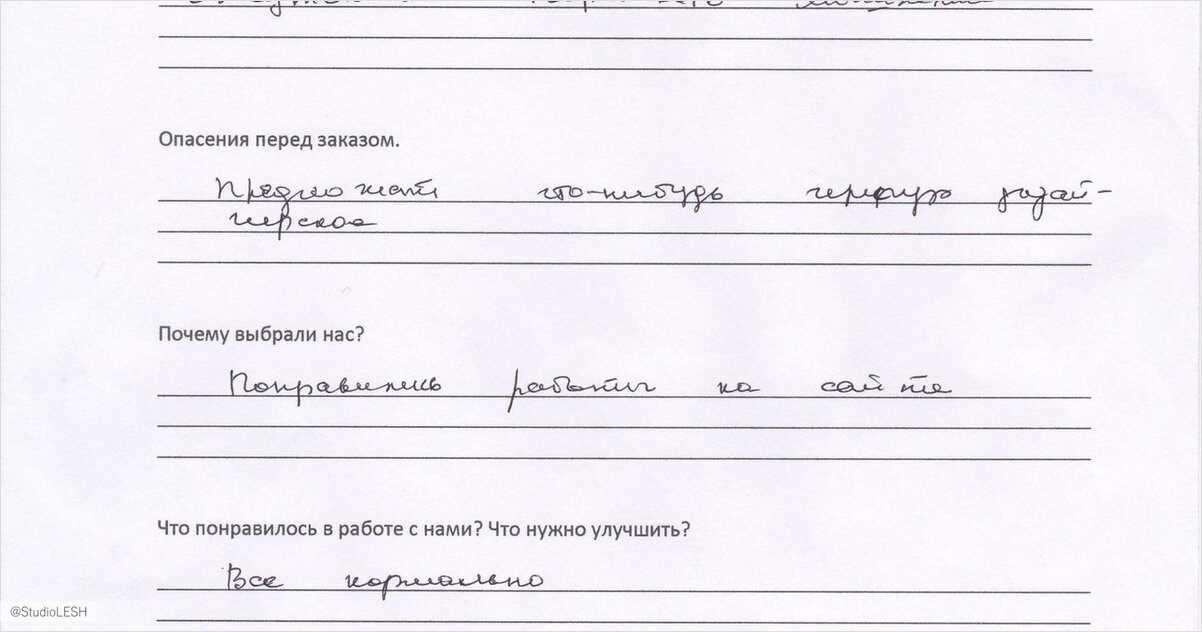 Опасения перед заказом.
Предложат что-нибудь чересчур дизай-
нерское
Почему выбрали нас?
Понравились работы на сайте
Что понравилось в работе с нами? Что нужно улучшить?
Все нормально
@StudioLESH